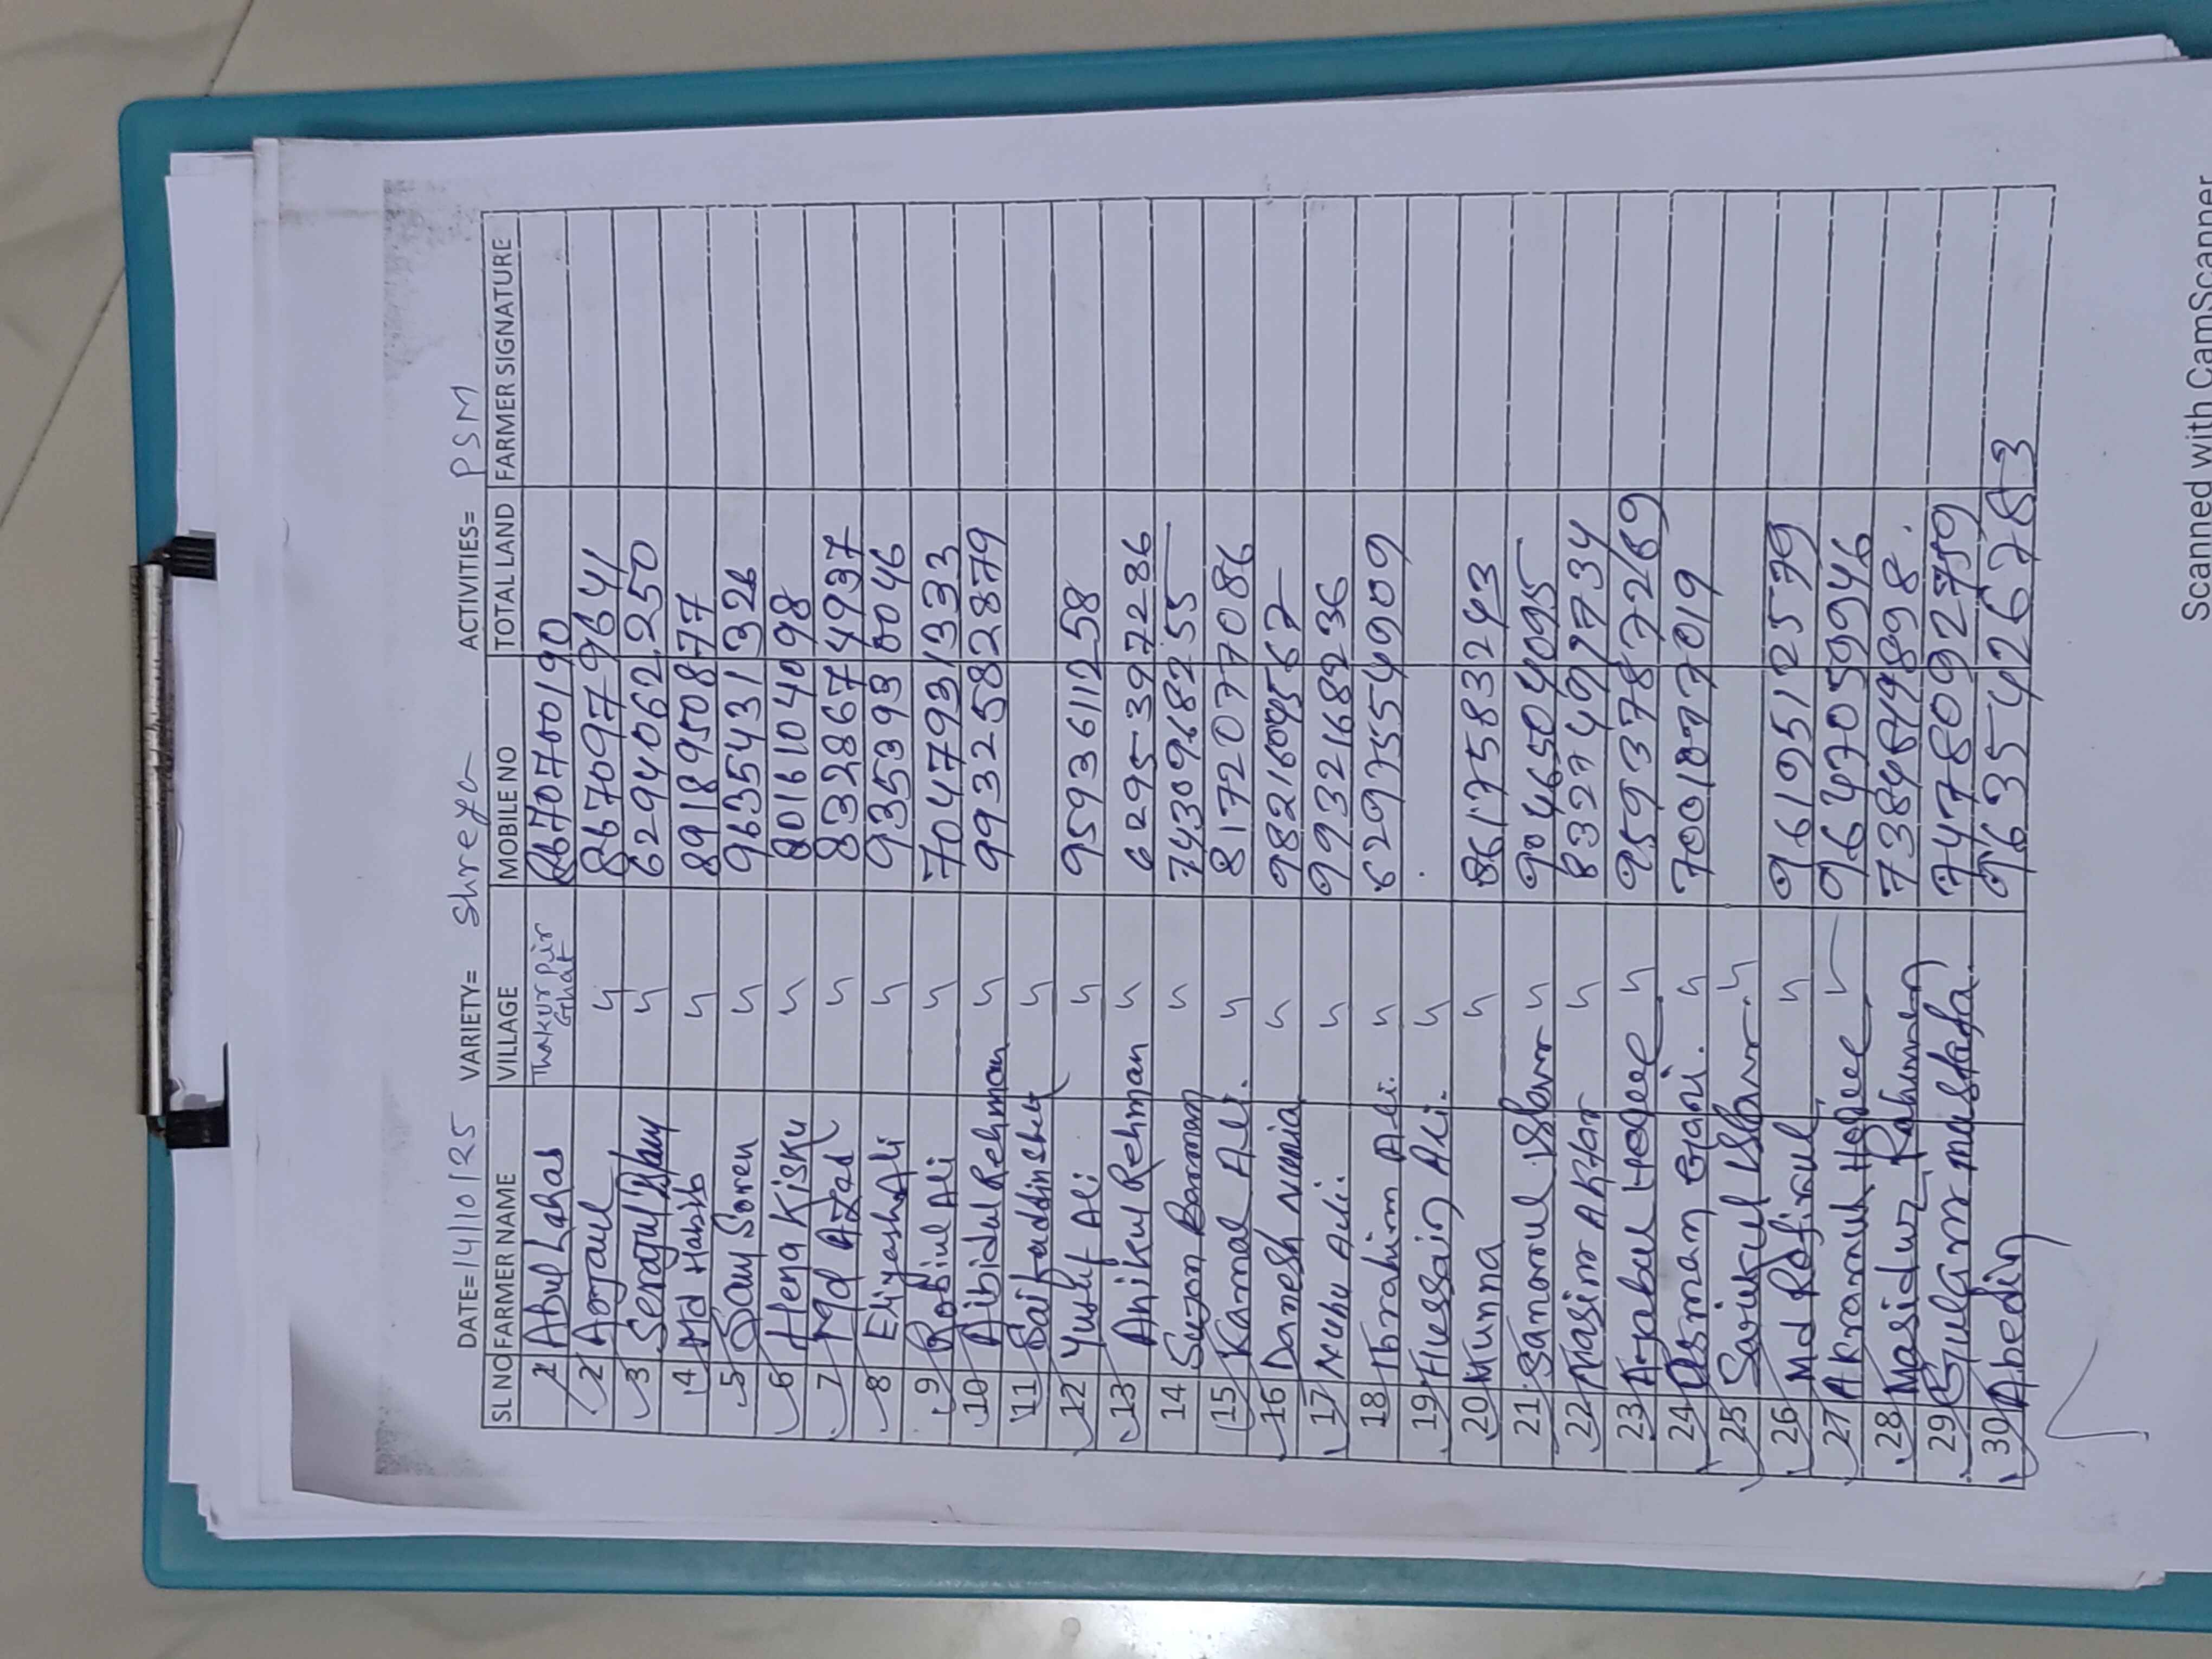 DATE= 14/10/25 VARIETY= Shreya ACTIVITIES= PSM
SL NO FARMER NAME VILLAGE MOBILE NO TOTAL LAND FARMER SIGNATURE
1 Abul Lahas Thakur pir Ghat 8670700190
2 8670979641
3 Serajul 6294062250
4 Md Habib 8918950877
5 Sauy Soren 9635431326
6 Hena Kisku 8016104098
7 Md Azad 8328674937
8 Eliyash Ali 9353930046
9 Robiul Ali 7047931333
10 Aibidul Rehman 9932582879
11 Saifaddin Shekh
12 Yusuf Ali 9593611258
13 Anikul Rehman 6295397286
14 Sujon Barman 7430968255
15 Kamal Ali. 8172077086
16 Danesh Nunia 9821609567
17 Nuhu Ali. 9932168236
18 Ibrahim Ali. 6297554909
19 Hussain Ali.
20 Munna 8617583243
21 Samarul Islam 9046504095
22 Nasim Aktar 8327499734
23 Azabul Hoque 9593787269
24 Osman Gani. 7001077019
25 Sarikul Islam.
26 Md Rafikul 9619512579
27 Akramul Hoque 9647059946
28 Masidur Rahman 7384819898.
29 Gulam mastafa. 7478092759
30 Abedin 9635426783
Scanned with CamScanner